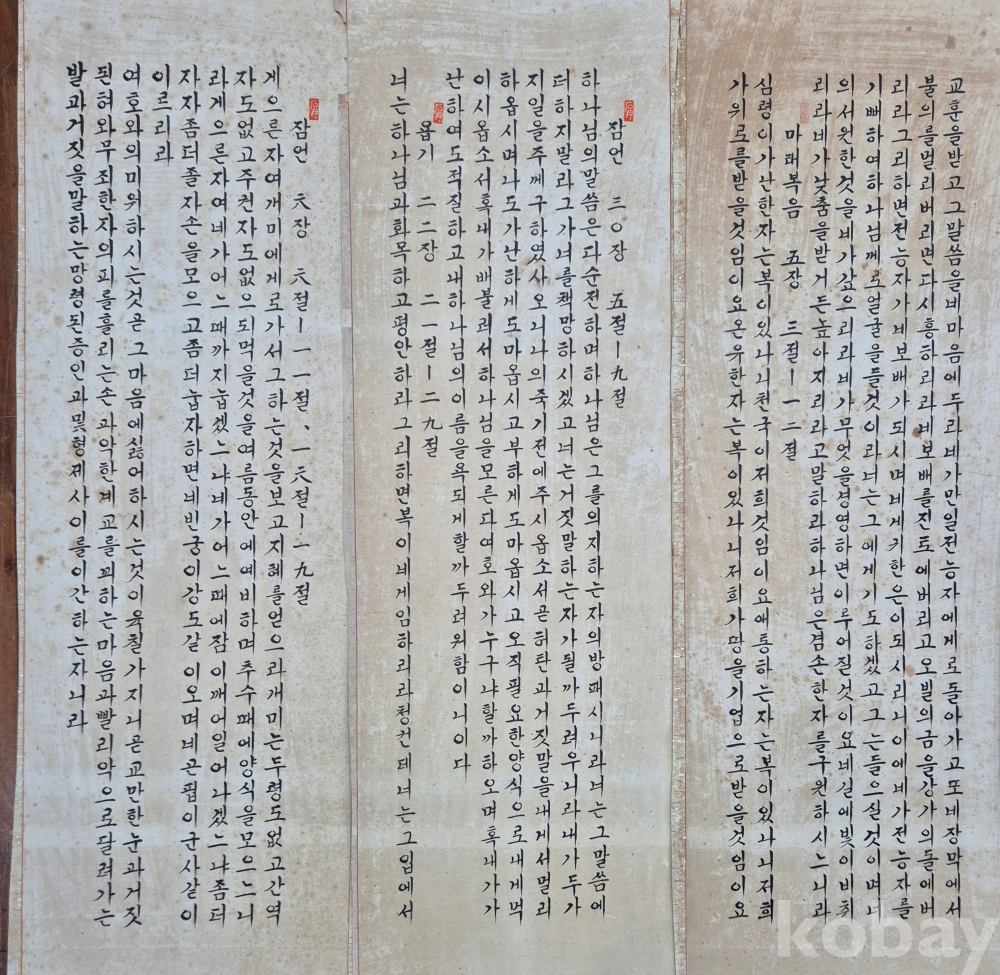 잠언 六장 六절ㅣ一一절、一六절ㅣ一九절
게으른자여개미에게로가서그하는것을보고지혜를얻으라개미는두령도없고간역
자도없고주권자도없으되먹을것을여름동안에예비하며추수때에양식을모으느니
라게으른자여네가어느때까지눕겠느냐네가어느때에잠이깨어일어나겠느냐좀더
자자좀더졸자손을모으고좀더눕자하면네빈궁이강도같이오며네곤핍이군사같이
이르리라
여호와의미워하시는것곧그마음에싫어하시는것이육칠가지니곧교만한눈과거짓
된혀와무죄한자의피를흘리는손과악한계교를꾀하는마음과빨리악으로달려가는
발과거짓을말하는망령된증인과및형제사이를이간하는자니라
잠언 三〇장 五절ㅣ九절
하나님의말씀은다순전하며하나님은그를의지하는자의방패시니라너는그말씀에
더하지말라그가너를책망하시겠고너는거짓말하는자가될까두려우니라내가두가
지일을주께구하였사오니나의죽기전에주시옵소서곧허탄과거짓말을내게서멀리
하옵시며나도가난하게도마옵시고부하게도마옵시고오직필요한양식으로내게먹
이시옵소서혹내가배불러서하나님을모른다여호와가누구냐할까하오며혹내가가
난하여도적질하고내하나님의이름을욕되게할까두려워함이니이다
욥기 二二장 二一절ㅣ二九절
너는하나님과화목하고평안하라그리하면복이네게임하리라청컨대너는그입에서
교훈을받고그말씀을네마음에두라네가만일전능자에게로돌아가고또네장막에서
불의를멀리버리면다시흥하리라네보배를진토에버리고오빌의금을강가의돌에버
리라그리하면전능자가네보배가되시며네게귀한은이되시리니이에네가전능자를
기뻐하여하나님께로얼굴을들것이라너는그에게기도하겠고그는들으실것이며너
의서원한것을네가갚으리라네가무엇을경영하면이루어질것이요네길에빛이비취
리라네가낮춤을받거든높아지리라고말하라하나님은겸손한자를구원하시느니라
마태복음 五장 三절ㅣ一二절
심령이가난한자는복이있나니천국이저희것임이요애통하는자는복이있나니저희
가위로를받을것임이요온유한자는복이있나니저희가땅을기업으로받을것임이요
kobay